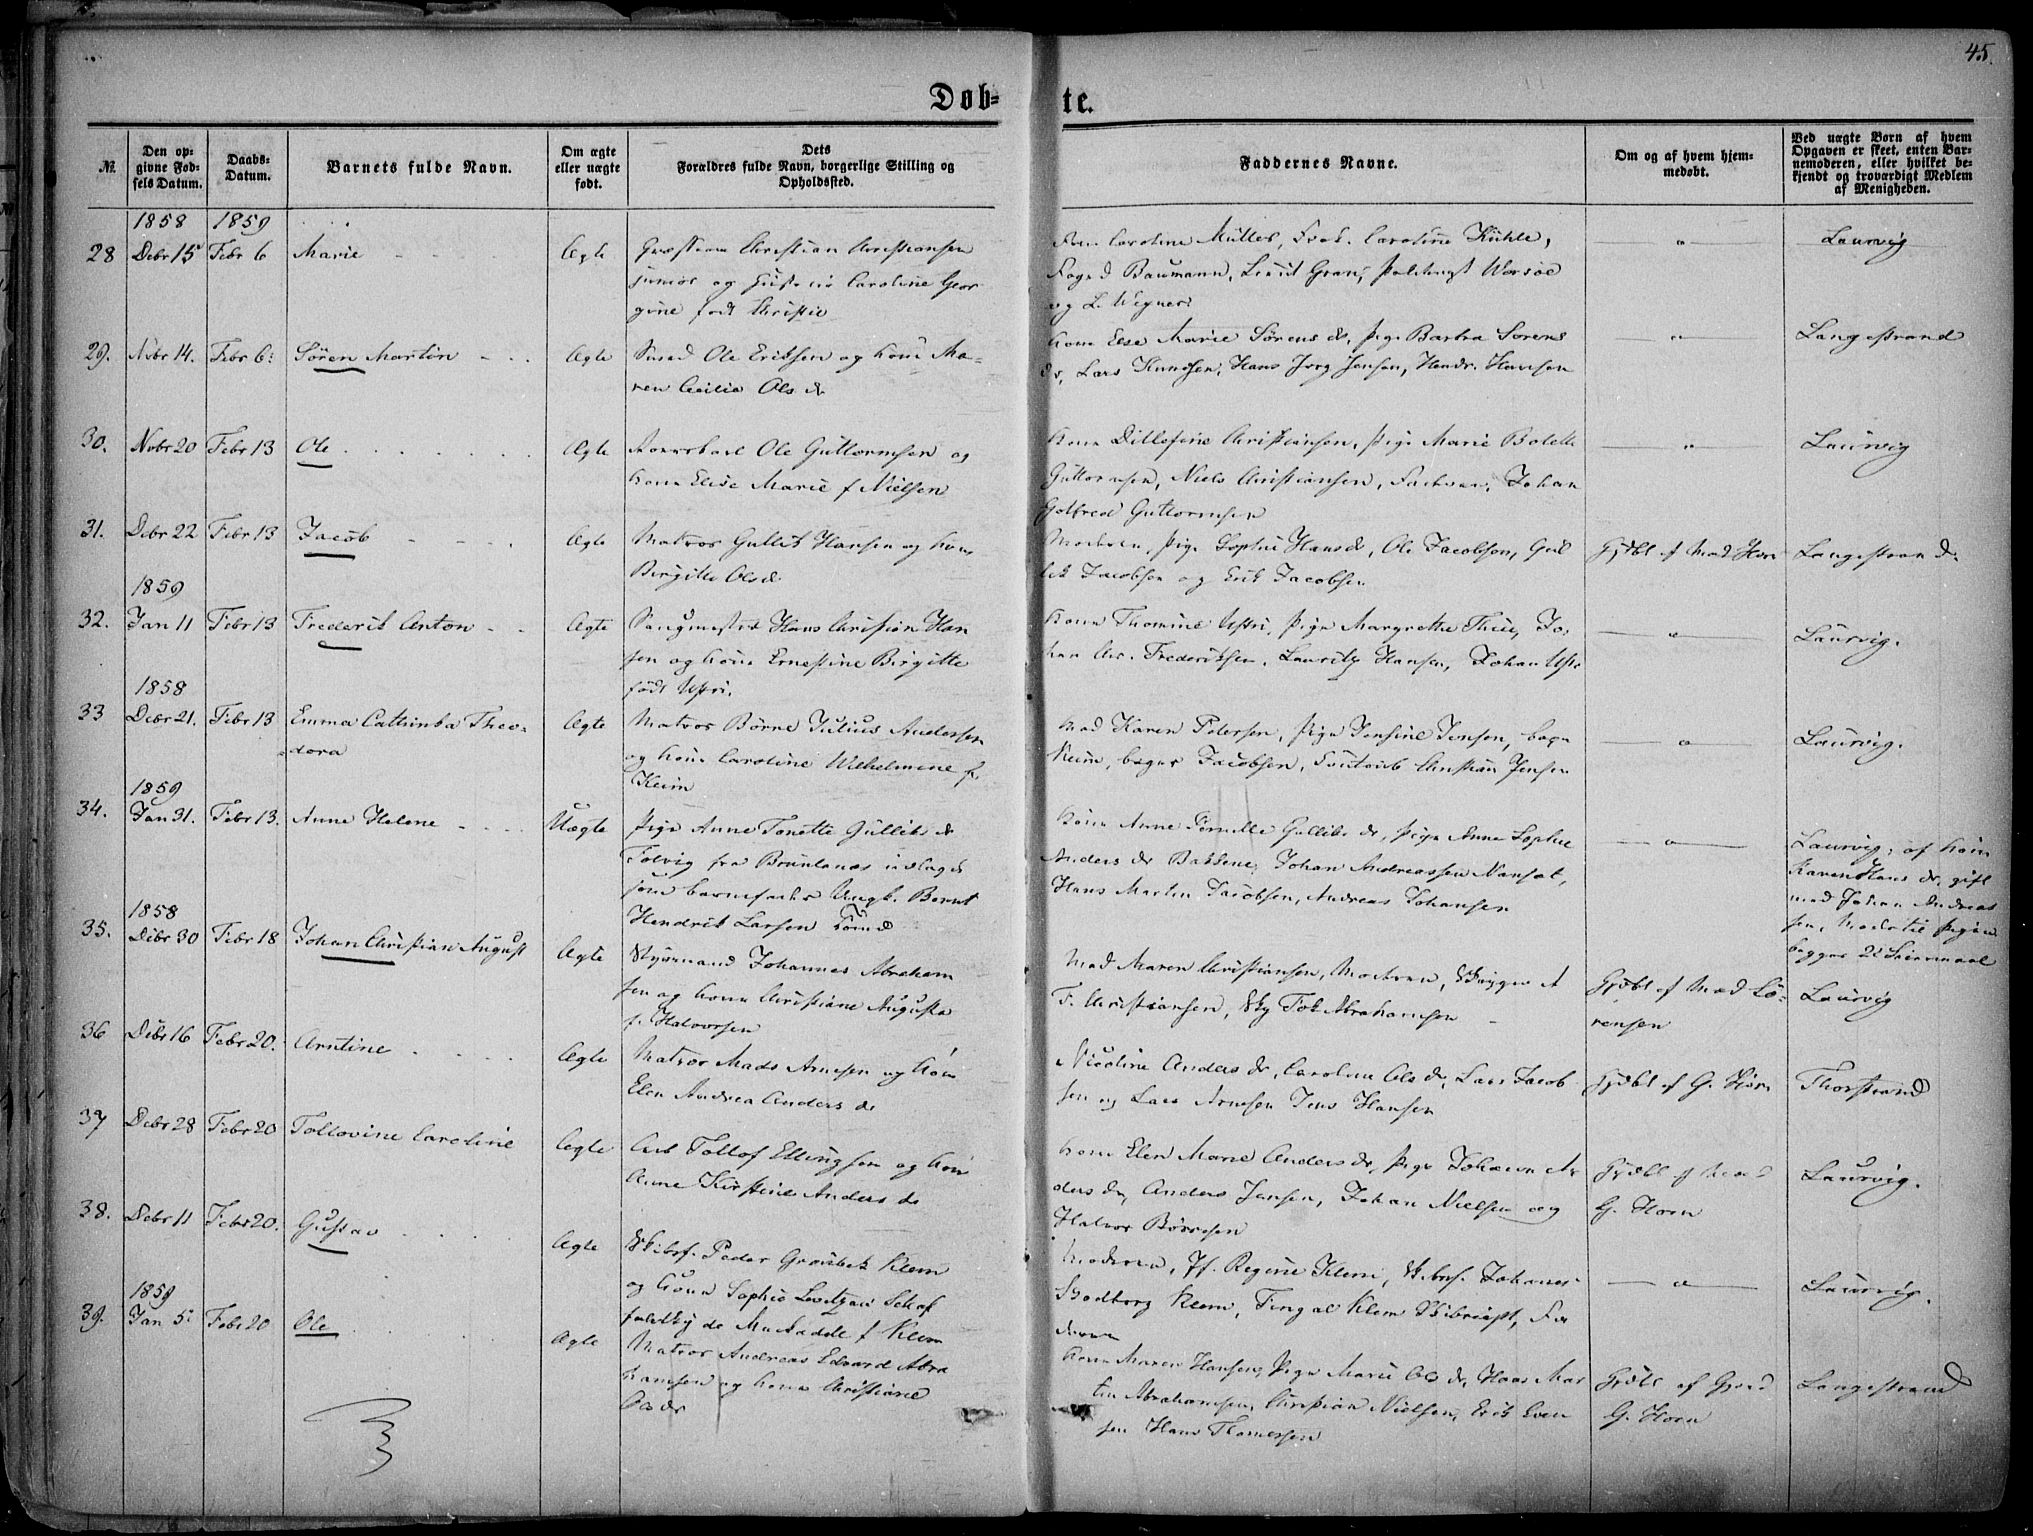 45.
Døb=
te.
№
Den op=
givne Fød=
sels Datum.
Daabs=
Datum.
Barnets fulde Navn.
Om ægte
eller uægte
født.
Dets
Forældres fulde Navn, borgerlige Stilling og
Opholdssted.
Faddernes Navne.
Om og af hvem hjem=
medøbt.
Ved uægte Børn af hvem
Opgaven er skeet, enten Bar=
nemoderen, eller hvilket be=
kjendt og troværdigt Medlem
af Menigheden.
1858 1859
28 Debr 15 Febr 6 Marie Ægte Christian Christiansen
junior og Caroline Geor
gine født Christie
Caroline Müller, Frøk. Caroline Kühle,
Foged Baumann, Worsøe
og L. Wegner
Laurvig
29. Nbr 14. Febr 6: Søren Martin Ægte Smed Ole Eriksen og Kone Ma=
ren Cecilia Ols d
Kone Else Marie Sørens d, Pige Barbra Sørens
d, Lars Knudsen, Hans Jørg Jensen, Hendr. Hansen
Langestrand
30. Nobr 20 Febr 13 Ole Ægte Ole Guttormsen og
Kone Elise Marie f Nielsen
Kone Christiansen, Pige Marie Bolette
Guttormsen, Niels Christiansen, Faderen, Johan
Gotfred Guttormsen
Laurvig
31. Debr 22 Febr 13 Jacob Ægte Matros Gullik Hansen og Kone
Birgitte Ols d
Moderen, Pige Sophie Hans d, Ole Jacobsen, Gul
lik Jacobsen og Erik Jacobsen
Gjdbt af Mad Horn
Langestrand.
1859
32. Jan 11 Febr 13 Frederik Anton Ægte Hans Christian Han
sen og Kone Ernestine Birgitte
født Ustri.
Kone Thomine Ustri, Pige Margrethe Thue, Jo=
han Chr. Frederiksen, Lauritz Hansen, Johan Ustri
Laurvig.
1858
33 Debr 21. Febr 13 Emma Cathinka Theo=
=dora
Ægte Matros Børre Julius Andersen
og Kone Caroline Wilhelmine f.
Keim
Mad Karen Petersen, Pige Jensine Jensen,
Keim, Jacobsen, Christian Jensen
Laurvig.
1859
34. Jan 31. Febr 13. Anne Helene Uægte Pige Anne Tonette Gulliks d
Tolvig fra Brunlanæs udlagt
som barnefader Ungk. Bernt
Hendrik Larsen
Kone Anne Pernille Gulliks d, Pige Anne Sophie
Anders d Bakkene, Johan Andreassen Nanset,
Hans Martin Jacobsen, Andreas Johansen
Laurvig, af Kone
Karen Hans d, gift
med Johan Andreas
sen, Moder til Pigen
1858
35. Debr 30 Febr 18 Johan Christian August
Ægte Styrmand Johannes Abraham
sen og Kone Christiane Augusta
f. Halvorsen
Mad Maren Christiansen, Moderen, A
F. Christiansen, Abrahamsen
Gjdbt af Mad Lo=
rensen
Laurvig
36 Debr 16 Febr 20. Arntine Ægte Matros Mads Arnesen og Kone
Elen Andrea Anders d
Nicoline Anders d, Caroline Ols d, Lars Jacob
sen og Lars Arnesen Jens Hansen
Gjdbt af G. Horn
Thorstrand
37 Debr 28 Febr 20 Tollovine Caroline
Ægte Arb Tollof Ellingsen og Kone
Anne Kirstine Anders d
Kone Elen Marie Anders d, Pige Johanne An
ders d, Anders Jensen, Johan Nielsen og
Halvor Børresen
Gjdbt af Mad
G. Horn
Laurvig.
38. Debr 11 Febr 20. Gustav Ægte Skibsf. Peder Grønbek Klem
og Kone Sophie Schaf
de f Klem
Moderen, Jf. Regine Klem, Skibsf. Johannes
Klem, Fingal Klem
Laurvig.
1859
39. Jan 5: Febr 20 Ole Ægte Matros Andreas Edvard Abra
hamsen og Kone Christiane
Ols d
Kone Maren Hansen, Pige Marie Ols d, Hans Mar
tin Abrahamsen, Christian Nielsen, Erik Even
sen Hans Thomessen
Gjdbt af
G. Horn
Langestrand